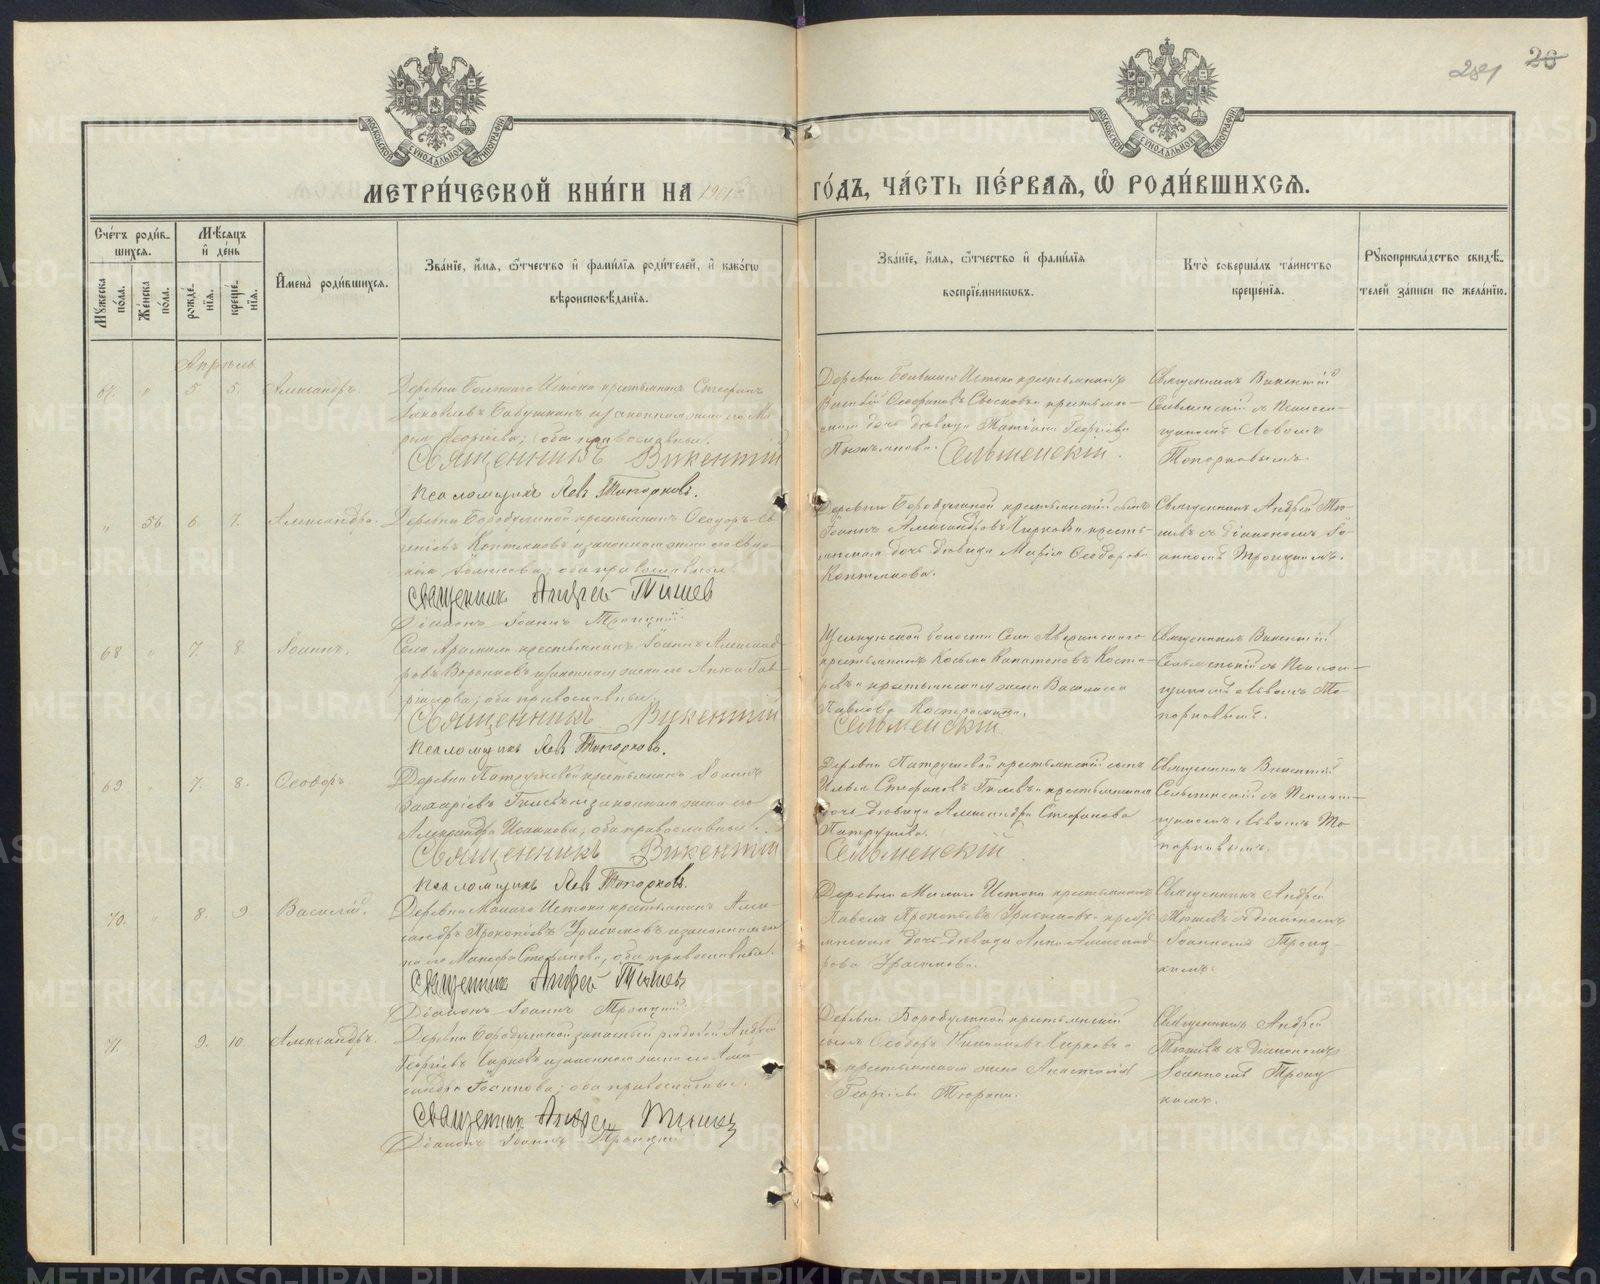 281 26
МОСКОВСКОЙ СѴНОДАЛЬНОЙ ТИПОГРАФІИ
МОСКОВСКОЙ СѴНОДАЛЬНОЙ ТИПОГРАФІИ
МЕТРИ́ЧЕСКОЙ КНИ́ГИ НА 190
ГО́ДЪ, ЧА́СТЬ ПЕ́РВАѦ, Ѡ҆ РОДИ́ВШИХСѦ.
Сче́тъ роди́в-
шихсѧ.
Мꙋ́жеска по́ла.
Же́нска по́ла.
Мѣ́сѧцъ и҆ де́нь
рожде́-
нїѧ.
креще́-
нїѧ.
И҆мена̀ роди́вшихсѧ.
Зва́нїе, и҆́мѧ, ѻ҆́тчество и҆ фами́лїѧ роди́телей, и҆ како́гѡ
вѣроисповѣ́данїѧ.
Зва́нїе, и҆́мѧ, ѻ҆́тчество и҆ фами́лїѧ
воспрїе́мникѡвъ.
Кто̀ соверша́лъ та́инство
креще́нїѧ.
Рꙋкоприкла́дство свидѣ́-
телей за́писи по жела́нїю.
Апрѣль
67. " 5 5. Александръ.
Деревни Большаго Истока крестьянинъ Стефанъ
Іаковлевъ Бабушкинъ и законная жена его Ма-
рія Георгіева; оба православные.
Священникъ Викентій Сельменскій.
Псаломщикъ Левъ Топорковъ.
Деревни Большаго Истока крестьянинъ
крестьян-
ская дочь дѣвица Татіана Георгіева
Священникъ Викентій
Сельменскій съ Псалом-
щикомъ Львомъ
Топорковымъ.
" 56. 6. 7. Александра.
Деревни Бородулиной крестьянинъ Ѳеодоръ Ев-
геніевъ Коптяковъ и законная жена его Евдо-
кія; оба православные
Священник Андрей Тюшев
Діаконъ Іоаннъ Троицкій
Деревни Бородулиной крестьянскій сынъ
Іоаннъ Александровъ Чирковъ и кресть-
янская дочь дѣвица Марія Ѳеодорова
Коптякова.
Священникъ Андрей Тю-
шевъ съ діакономъ Іо-
анномъ Троицкимъ.
68 " 7. 8. Іоаннъ.
Села Арамили крестьянинъ Іоаннъ Александ-
ровъ и законная жена его Анна Гав-
ріилова; оба православные.
Священникъ Викентій Сельменскій
Псаломщикъ Левъ Топорковъ.
Щелкунской волости Села Аверинскаго
крестьянинъ Косьма
и крестьянская жена Василисса
Павлова
Священникъ Викентій
Сельменскій съ Псалом-
щикомъ Львомъ То-
порковымъ.
69 " 7. 8. Ѳеодоръ
Деревни Патрушевой крестьянинъ Іоаннъ
Захаріевъ Гилевъ и законная жена его
Александра; оба православные.
Священникъ Викентій Сельменскій
Псаломщикъ Левъ Топорковъ.
Деревни Патрушевой крестьянскій сынъ
Илья Стефановъ Гилевъ и крестьянская
дочь дѣвица Александра Стефанова
Патрушева.
Священникъ Викентій
Сельменскій съ Псалом-
щикомъ Львомъ То-
порковымъ.
70. " 8. 9 Василій.
Деревни Малаго Истока крестьянинъ Алек-
сандръ Прокопіевъ и законная же-
на его Стефанова, оба православные.
Священник Андрей Тюшев
Діаконъ Іоаннъ Троицкій
Деревни Малаго Истока крестьянинъ
Павелъ Прокопьевъ и кресть-
янская дочь дѣвица Анна Александ-
рова
Священникъ Андрей
Тюшевъ съ діакономъ
Іоанномъ Троиц-
кимъ.
71. 9. 10. Александръ.
Деревни Бородулиной запасный рядовой Андрей
Георгіевъ Чирковъ и законная жена его Алек-
сандра; оба православные.
Священник Андрей Тюшев
Діаконъ Іоаннъ Троицкій
Деревни Бородулиной крестьянскій
сынъ Ѳеодоръ Чирковъ и
крестьянская жена Анастасія
Георгіева
Священникъ Андрей
Тюшевъ съ діакономъ
Іоанномъ Троиц-
кимъ.
METRIKI.GASO-URAL.RU